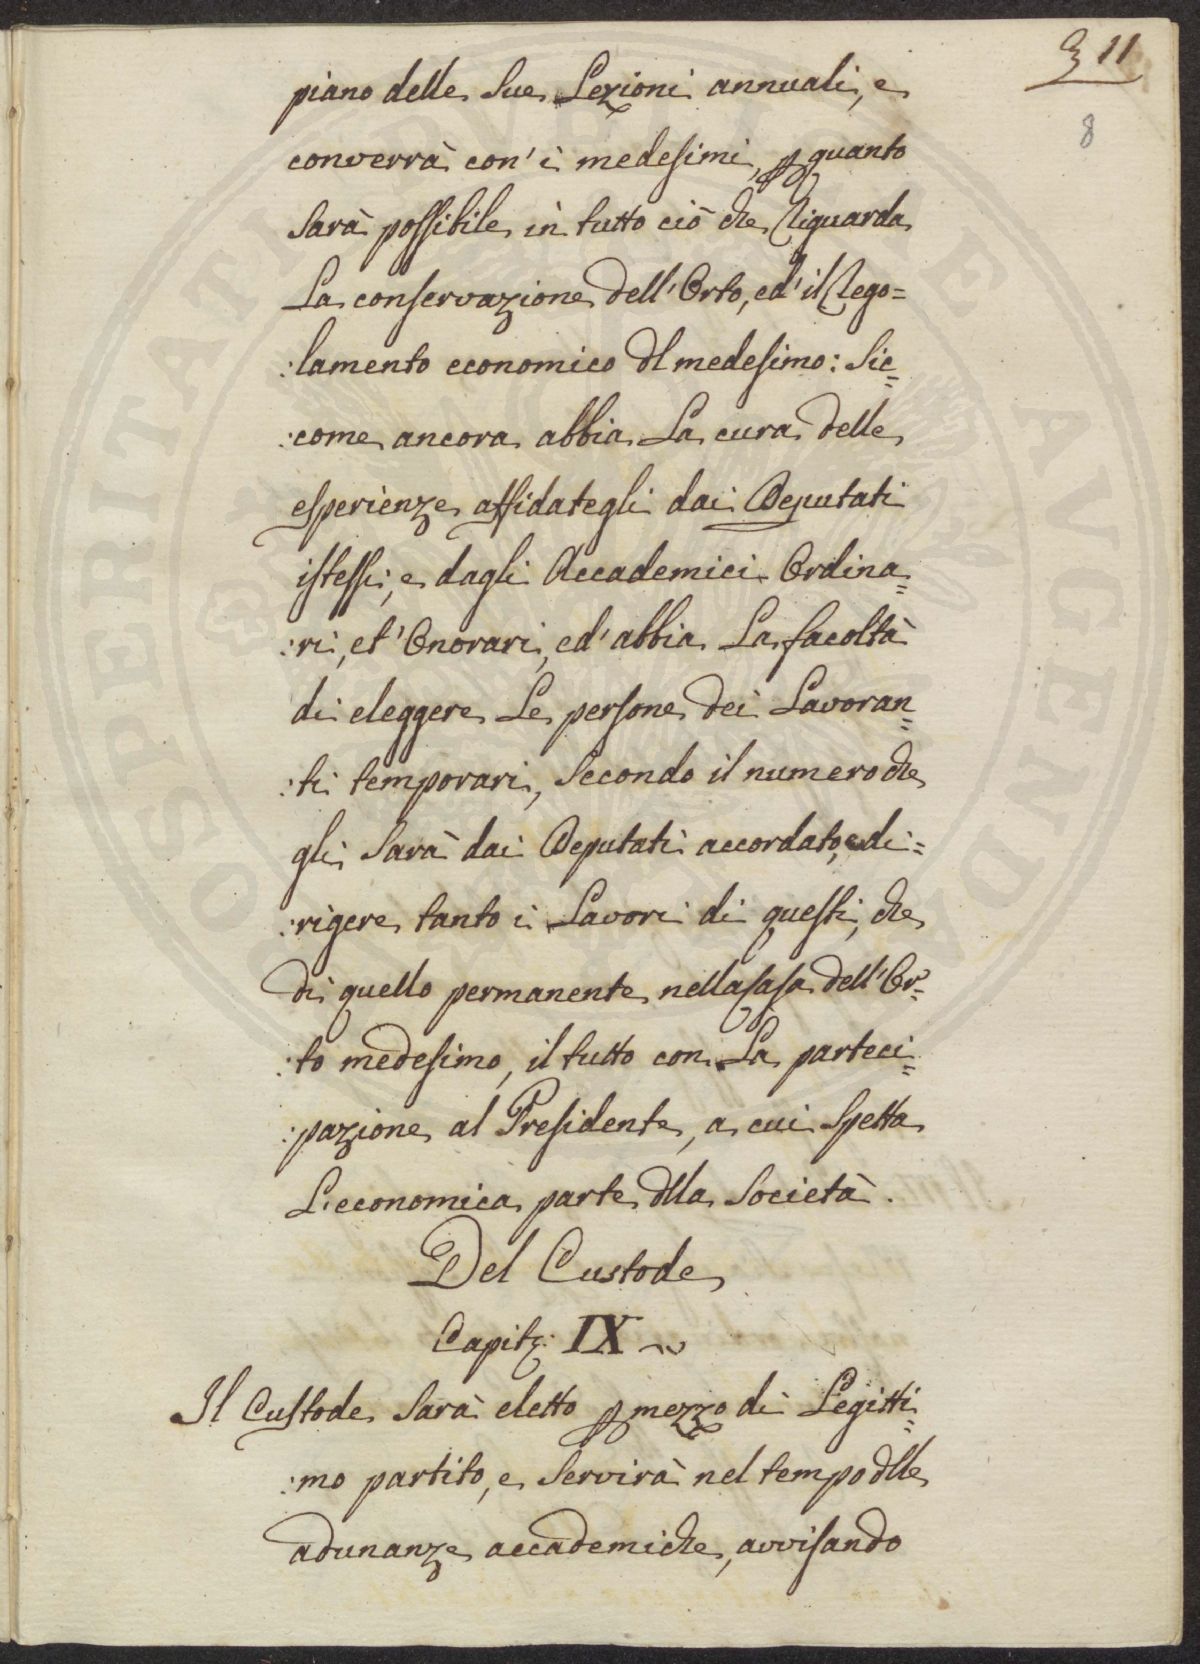 11
8
piano delle sue Lezioni annuali, e
converrà con' i medesimi, p quanto
sarà possibile in tutto ciò che riguarda
La conservazione dell'Orto, ed' il Rego=
:lamento economico dl medesimo: sic=
:come ancora abbia La cura delle
esperienze affidategli dai Deputati
istessi, e dagli Accademici Ordina=
:ri, et' Onorari, ed' abbia La facoltà
di eleggere Le persone dei Lavoran=
:ti temporari, secondo il numero che
gli sarà dai Deputati accordato, e di=
:rigere tanto i Lavori di questi, che
di quello permanente nella Casa dell'Or=
:to medesimo, il tutto con La parteci=
:pazione al Presidente, a cui spetta
L'economica parte dlla società.
Del Custode
Capit: IX
Il Custode sarà eletto p mezzo di Legitti=
:mo partito, e servirà nel tempo dlle
adunanze accademiche, avvisando
PROSPERITATI PUBLICAE AUGENDAE